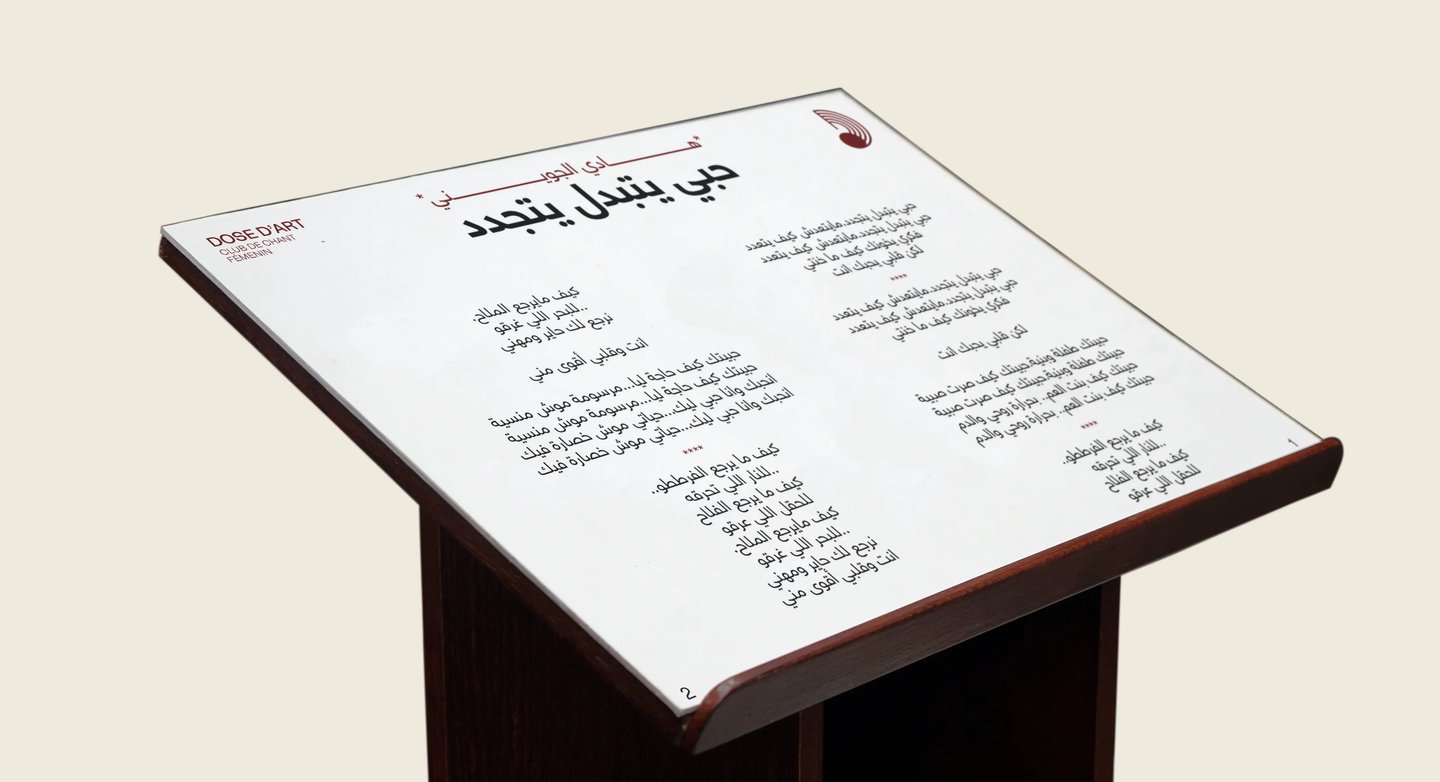 *هـــادي الجويـــني*
حبي يتبدل يتجدد
DOSE D'ART
CLUB DE CHANT
FÉMENIN
حبي يتبدل يتجدد.مايتعدش كيف يتعدد
حبي يتبدل يتجدد.مايتعدش كيف يتعدد
فكري يخونك كيف ما خنتي
لكن قلبي يحبك انت
****
حبي يتبدل يتجدد.مايتعدش كيف يتعدد
حبي يتبدل يتجدد.مايتعدش كيف يتعدد
فكري يخونك كيف ما خنتي
لكن قلبي يحبك انت
حبيتك طفلة وبنية.حبيتك كيف صرت صبية
حبيتك طفلة وبنية.حبيتك كيف صرت صبية
حبيتك كيف بنت العم.. بحرارة روحي والدم
حبيتك كيف بنت العم.. بحرارة روحي والدم
****
كيف ما يرجع الفرططو..
..للنار اللي تحرقه
كيف ما يرجع الفلاح
للحقل اللي عرقو
1
كيف مايرجع الملاح.
..للبحر اللي غرقو
نرجع لك حاير ومهني
أنت وقلبي أقوى مني
حبيتك كيف حاجة ليا...مرسومة موش منسية
حبيتك كيف حاجة ليا...مرسومة موش منسية
انحبك وانا حبي ليك...حياتي موش خصارة فيك
انحبك وانا حبي ليك...حياتي موش خصارة فيك
****
كيف ما يرجع الفرططو..
..للنار اللي تحرقه
كيف ما يرجع الفلاح
للحقل اللي عرقو
كيف مايرجع الملاح.
..للبحر اللي غرقو
نرجع لك حاير ومهني
أنت وقلبي أقوى مني
2